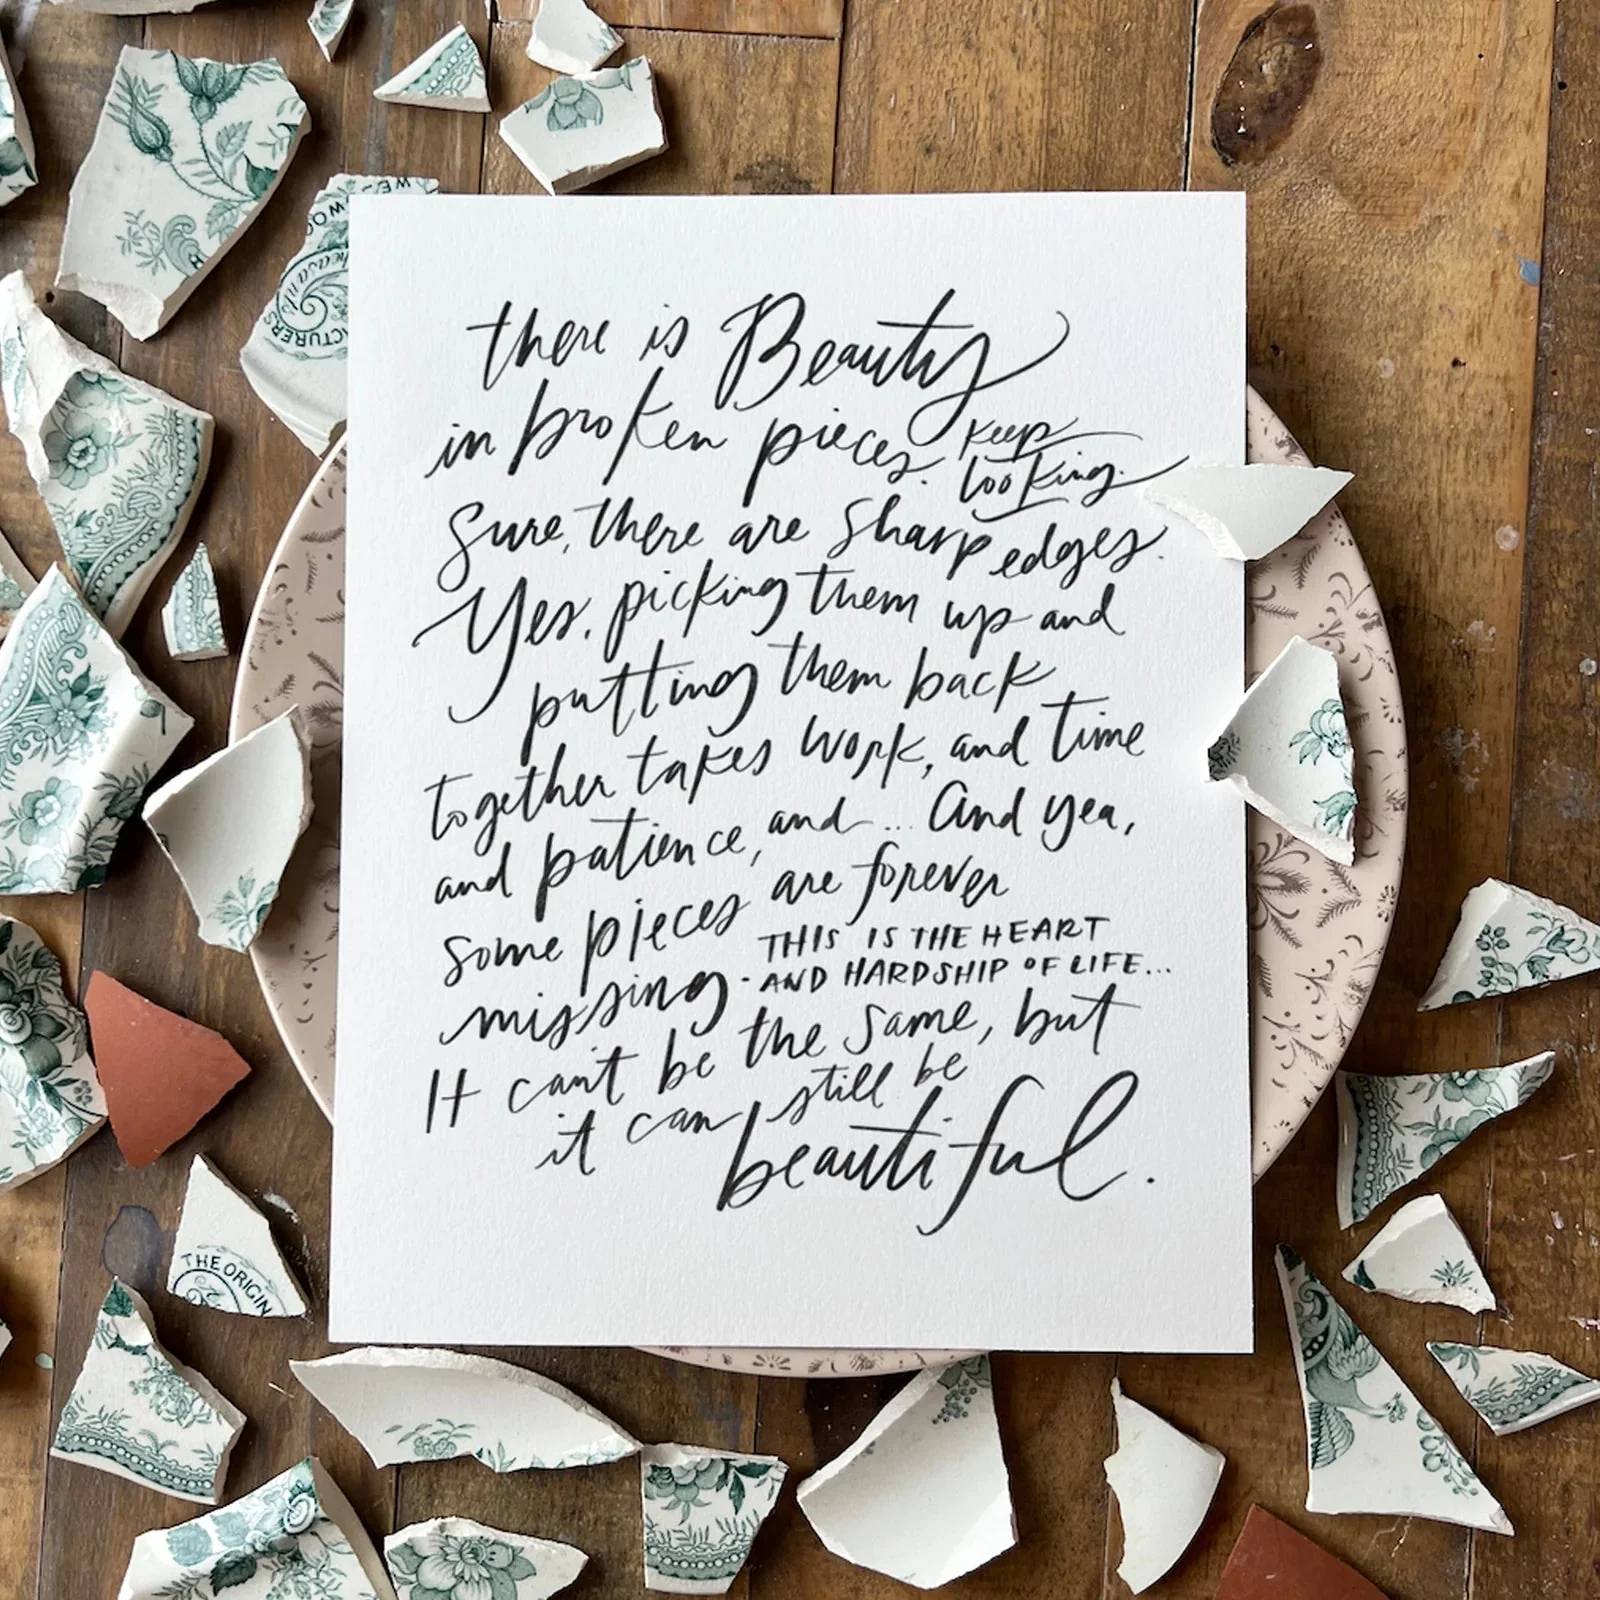 there is Beauty
in broken pieces. keep
looking.
Sure, there are sharp edges.
Yes, picking them up and
putting them back
together takes work, and time
and patience, and... And yea,
some pieces are forever
missing. THIS IS THE HEART
AND HARDSHIP OF LIFE...
It can't be the same, but
it can still be
beautiful.
THE ORIGIN
CTURERS